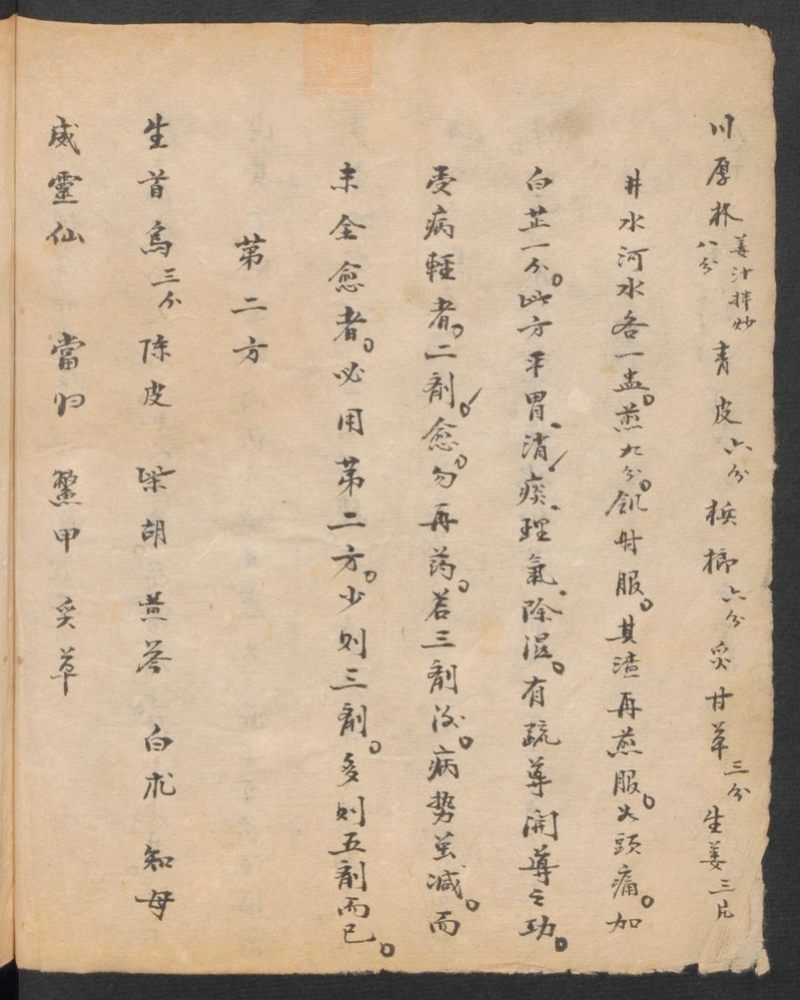 川厚朴姜汁拌炒八分 青皮六分 槟榔六分 炙甘草三分 生姜三片
井水河水各一盅。煎九分。飢时服。其渣再煎服。如頭痛。加
白芷一分。此方平胃、消痰、理氣、除湿。有疏導開導之功。
受病輕者。二劑。愈。勿再药。若三劑后。病势虽减。而
未全愈者。必用第二方。少则三劑。多则五劑而已。
第二方
生首烏三分 陈皮 柴胡 黄芩 白朮 知母
威靈仙 當归 鱉甲 炙草